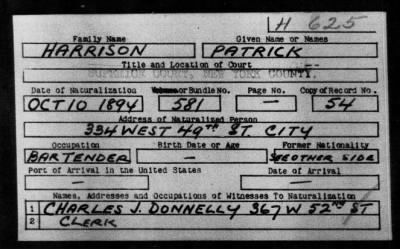 H 625
Family Name Given Name or Names
HARRISON PATRICK
Title and Location of Court
SUPERIOR COURT, NEW YORK COUNTY.
Date of Naturalization Volume or Bundle No. Page No. Copy of Record No.
OCT 10 1894 581 — 54
Address of Naturalized Person
334 WEST 49TH ST. CITY
Occupation Birth Date or Age Former Nationality
BARTENDER — SEE OTHER SIDE
Port of Arrival in the United States Date of Arrival
— —
Names, Addresses and Occupations of Witnesses To Naturalization
1 CHARLES J. DONNELLY 367 W 52ND ST
2 CLERK